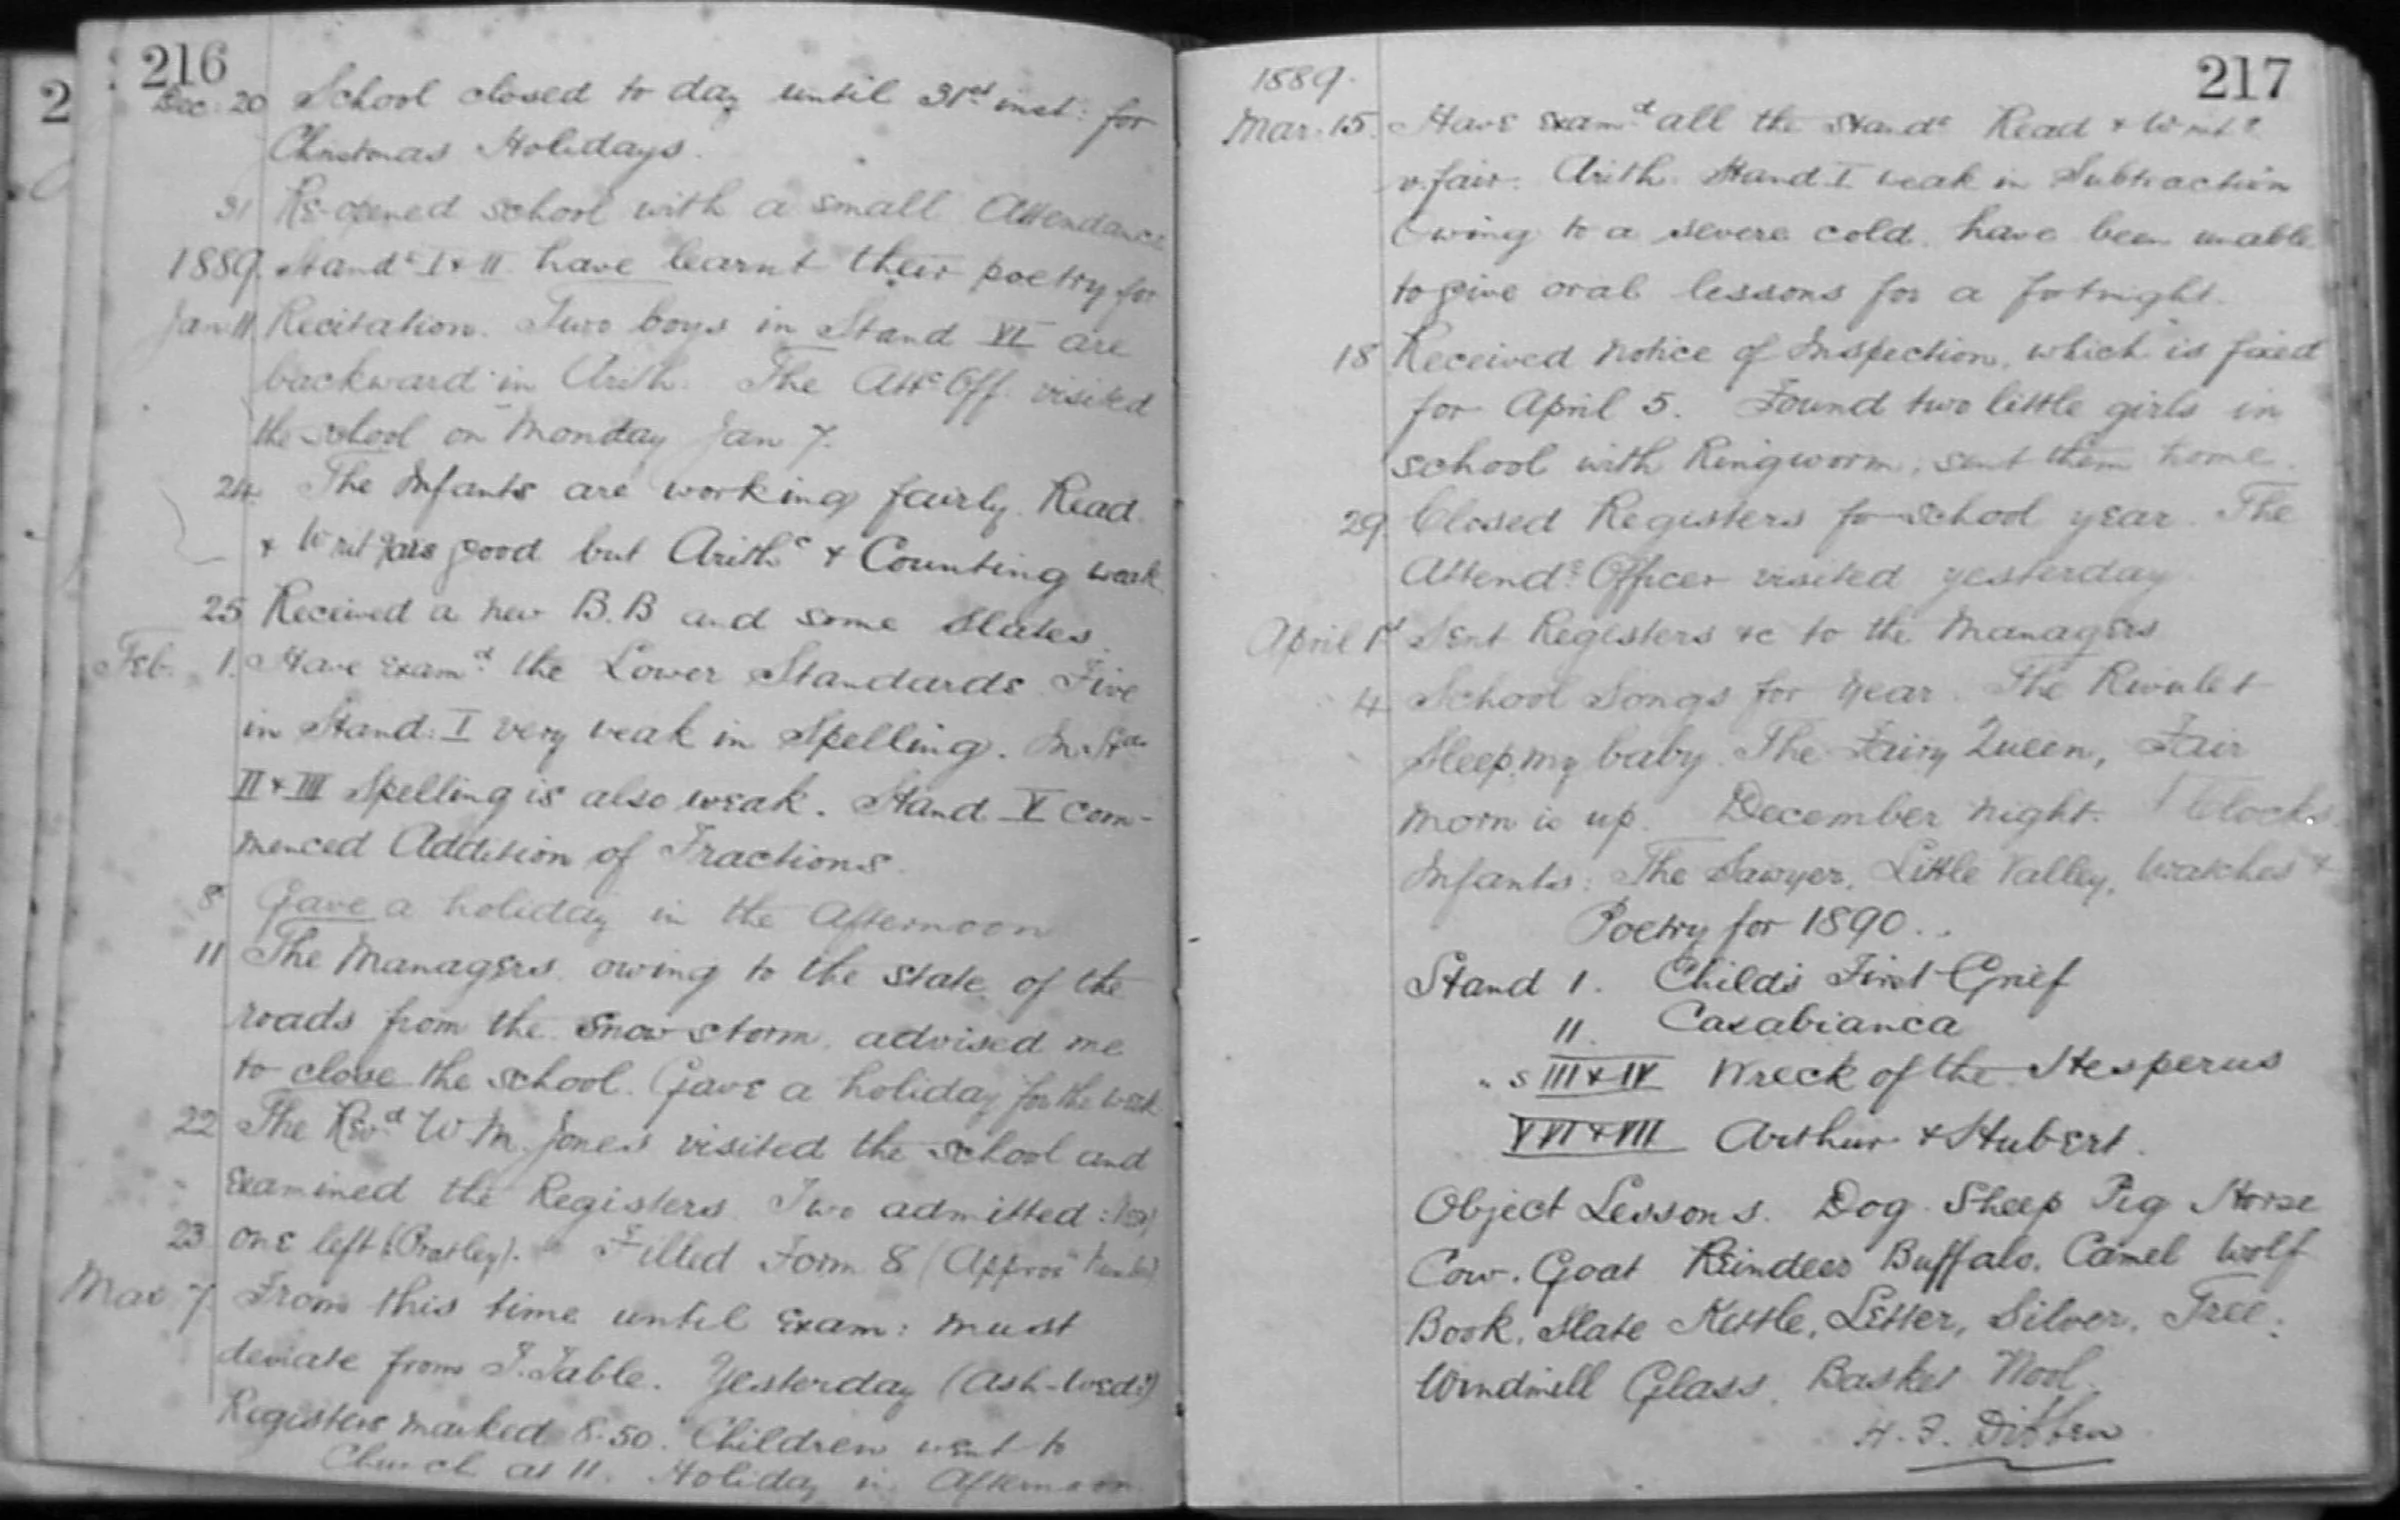 216
Dec. 20 School closed to day until 31st inst: for
Christmas Holidays.
31 Re-opened school with a small Attendance
1889. Stands I & II have learnt their poetry for
Jan 11 Recitation. Two boys in Stand VI are
backward in Arith. The Attce Off. visited
the school on Monday Jan 7.
24. The Infants are working fairly. Read.
& Writg are good but Arithc & Counting weak.
25 Received a new B.B and some Slates.
Feb. 1. Have Examd the Lower Standards. Five
in Stand. I very weak in Spelling. In
II & III Spelling is also weak. Stand V com-
menced Addition of Fractions.
8 Gave a holiday in the Afternoon
11 The Managers owing to the state of the
roads from the snow storm, advised me
to close the school. Gave a holiday for the week
22 The Revd W. M. Jones visited the school and
Examined the Registers. Two admitted:
23 one left (Pratley). Filled Form 8 (Approx
Mar 7. From this time until Exam: must
deviate from T. Table. Yesterday (Ash-Wedy)
Registers marked 8.50. Children went to
Church at 11. Holiday in Afternoon
217
1889.
Mar. 15. Have Examd all the Stands Read & Writg
v. fair. Arith. Stand I weak in Subtraction
Owing to a severe cold have been unable
to give oral lessons for a fortnight.
18 Received notice of Inspection, which is fixed
for April 5. Found two little girls in
school with Ringworm, sent them home.
29. Closed Registers for school year. The
Attendce Officer visited yesterday
April 1st Sent Registers &c to the Managers
4 School Songs for Year. The Rivulet
Sleep, my baby. The Fairy Queen, Fair
Morn is up. December Night. Clocks.
Infants: The Sawyer, Little Valley, Watches &
Poetry for 1890..
Stand 1. Child's First Grief
II. Casabianca
" s III & IV Wreck of the Hesperus
V VI & VII Arthur & Hubert.
Object Lessons. Dog. Sheep Pig Horse
Cow. Goat Reindeer Buffalo. Camel Wolf
Book. Slate Kettle, Letter, Silver. Tree.
Windmill Glass. Basket Wool.